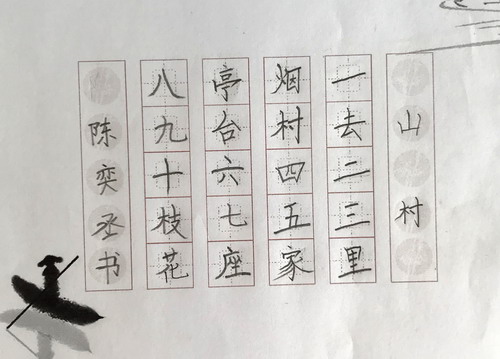 山村
一去二三里
烟村四五家
亭台六七座
八九十枝花
陈奕丞书